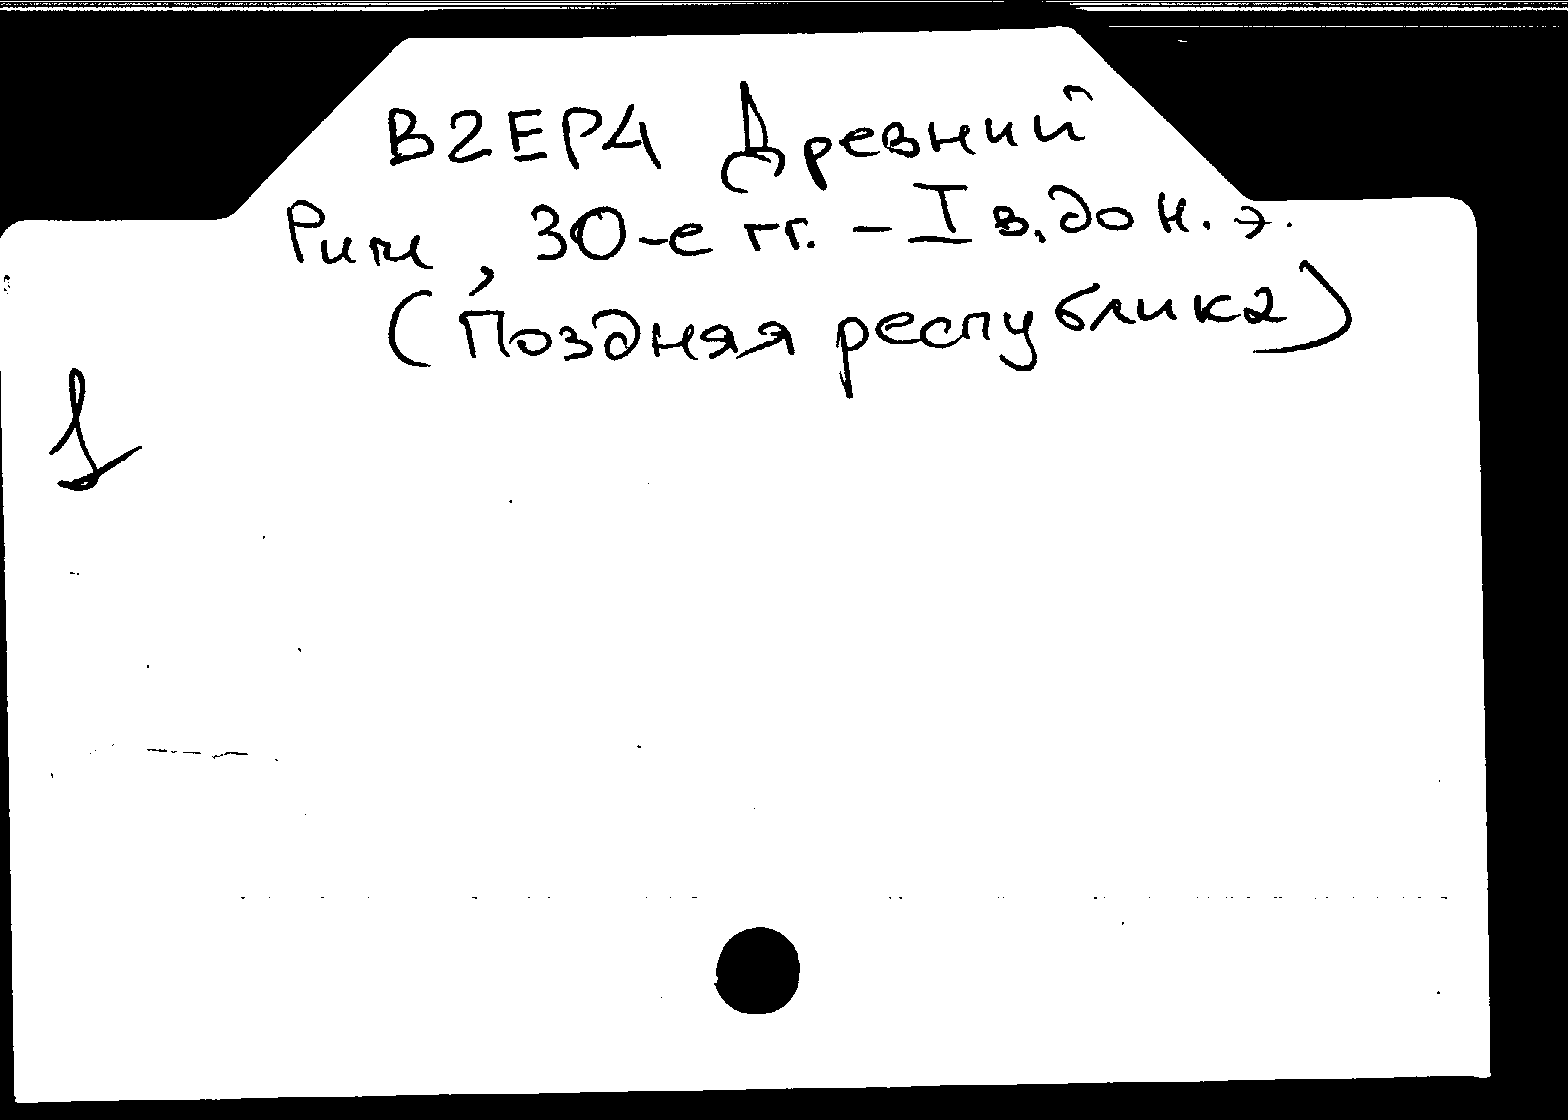 В2ЕР4 Древний
Рим, 30-е гг. - I в. до н. э.
(Поздняя республика)
1